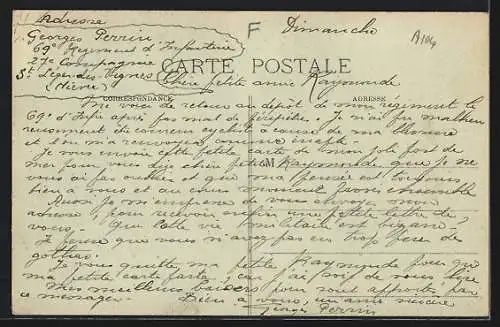 Adresse
Georges Perrin
69e Regiment d'Infanterie
27e Compagnie
St Léger des Vignes
(Nièvre)
F
Dimanche
A104
CARTE POSTALE
Chère petite amie Raymonde
CORRESPONDANCE
ADRESSE
Me voici de retour au dépôt de mon régiment le
69e d'Infie après pas mal de Je n'ai malheu
reusement été coureur cycliste à cause de ma
et l'on m'a renvoyé comme inapte
Je vous envoie cette petite carte de mon joli post de
mer pour vous dire chère petite Raymonde, que je ne
vous ai pas oublié et que ma pensée est toujours
bien à vous et au ensemble
Aussi je m'empresse de vous envoyer mon
adresse, pour recevoir enfin une petite lettre de
vous. Que cette vie militaire est
Je pense que vous n'avez pas eu trop peur des
gothas.
Je vous quitte, ma petite Raymonde pour que
ma petite carte parte, car ai soif de vous lire
Mes meilleurs baisers pour vous apportés par
ce messager. Bien à vous, un ami sincère
Georges Perrin